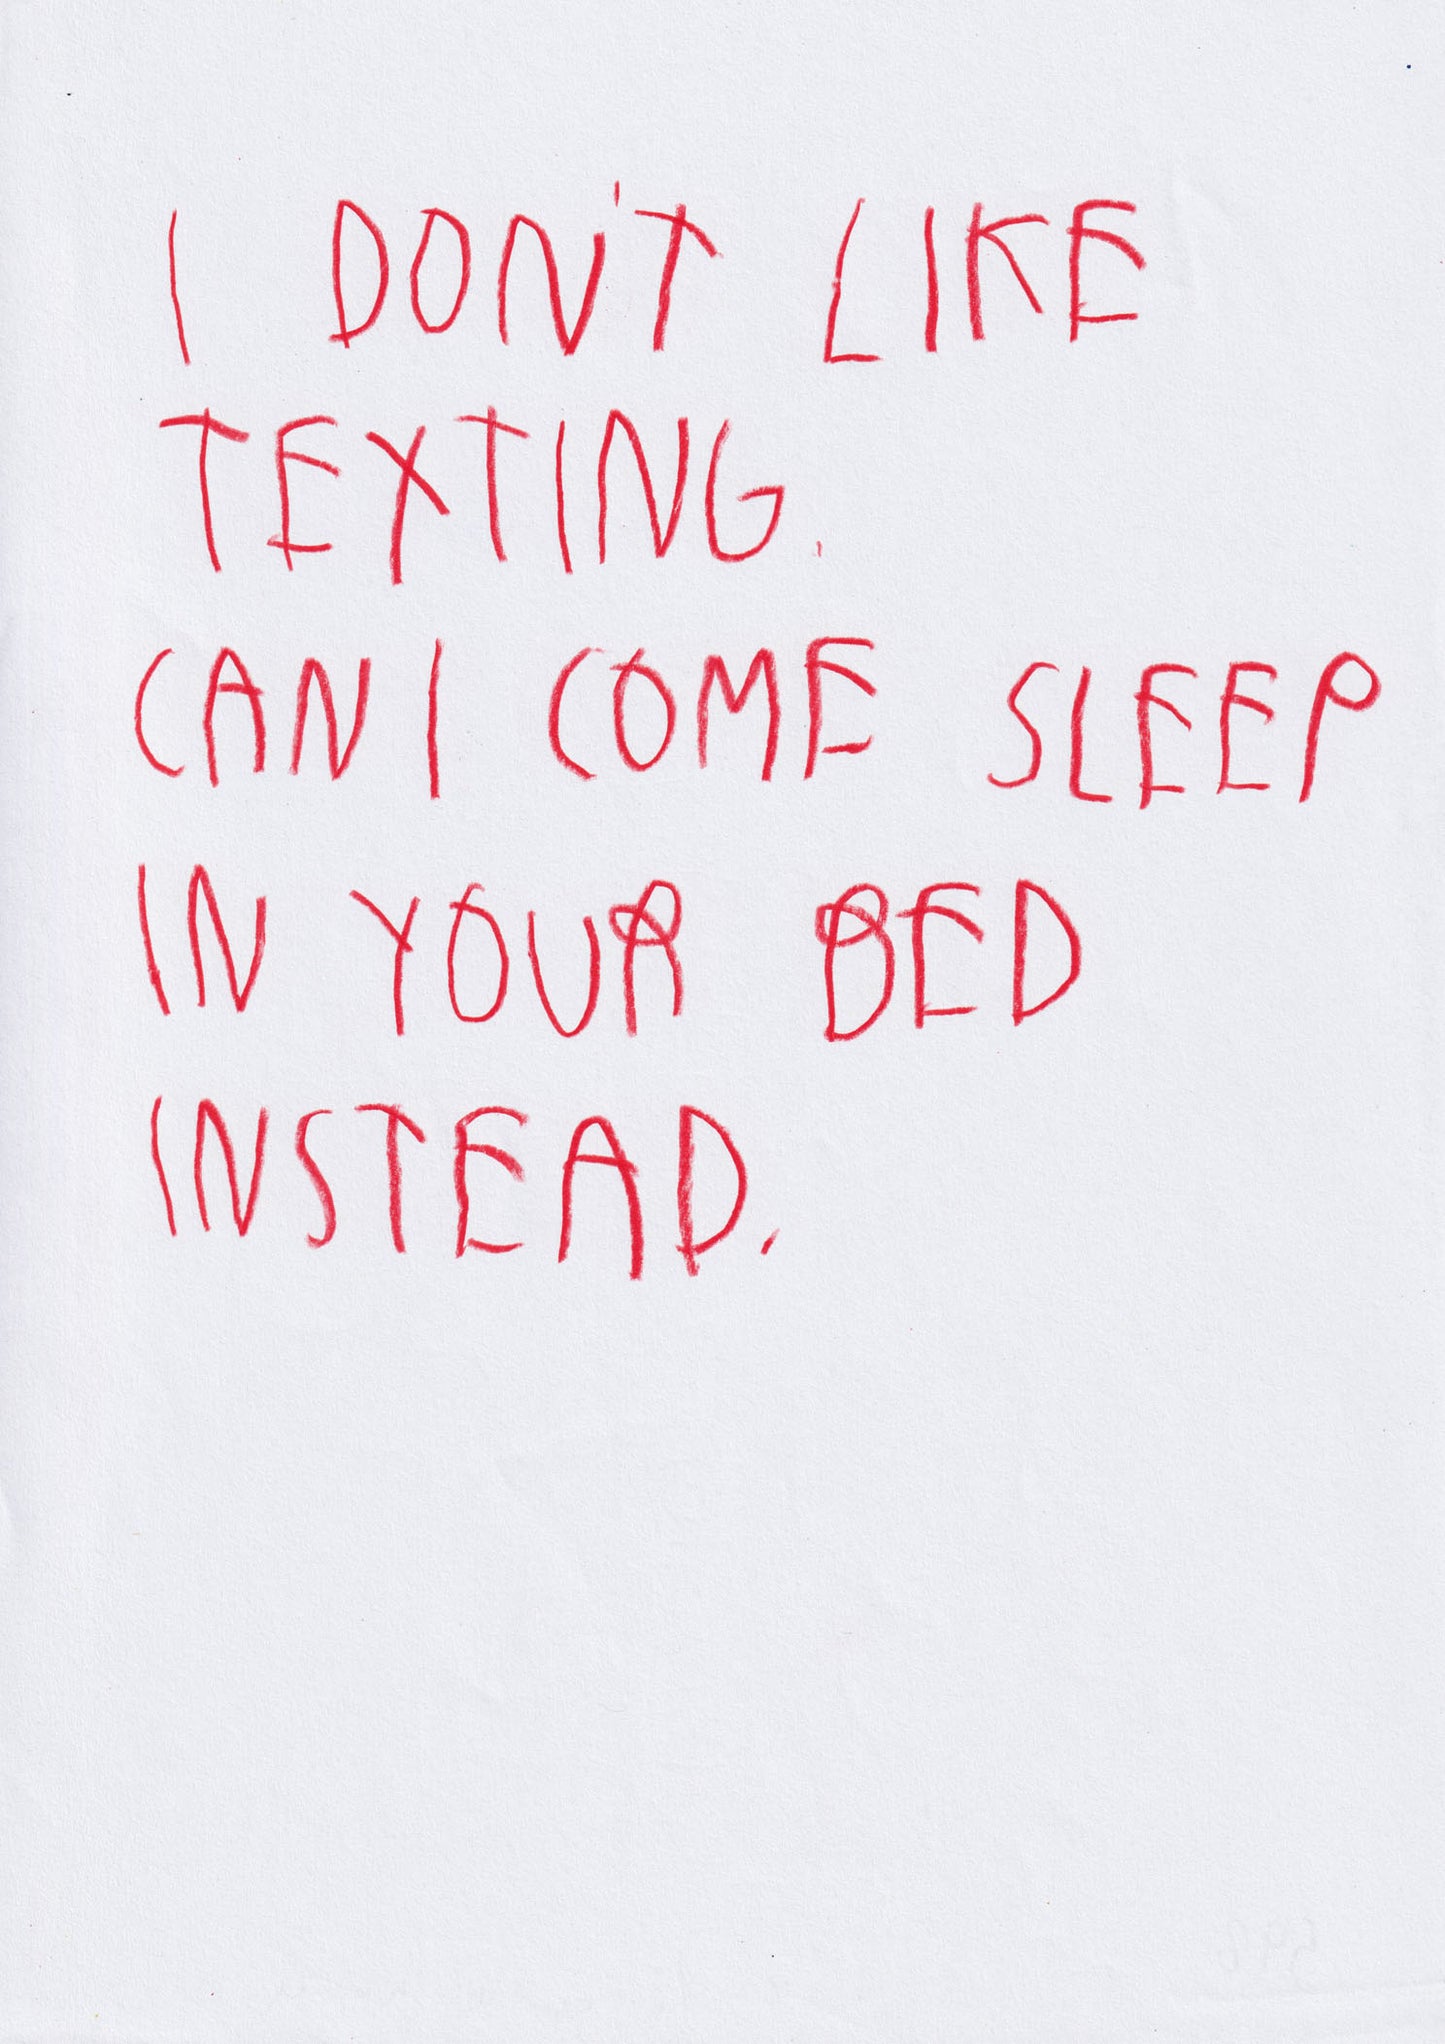 I DON'T LIKE
TEXTING.
CAN I COME SLEEP
IN YOUR BED
INSTEAD.